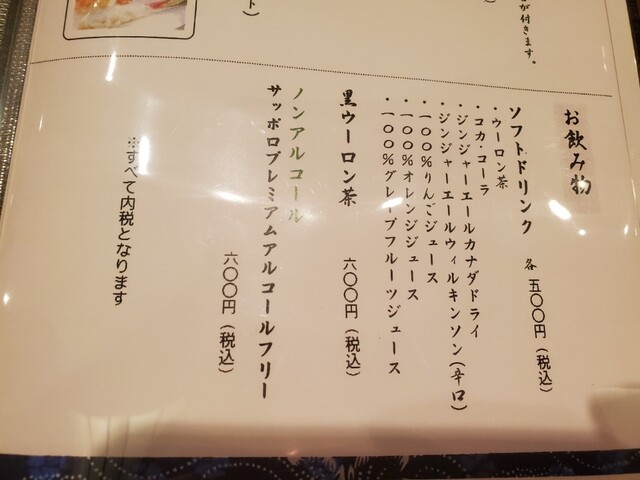 が付きます。
)
ト)
お飲み物
ソフトドリンク 各 五〇〇円(税込)
・ウーロン茶
・コカ・コーラ
・ジンジャーエールカナダドライ
・ジンジャーエールウィルキンソン(辛口)
・一〇〇%りんごジュース
・一〇〇%オレンジジュース
・一〇〇%グレープフルーツジュース
黒ウーロン茶 六〇〇円(税込)
ノンアルコール
サッポロプレミアムアルコールフリー
六〇〇円(税込)
※すべて内税となります